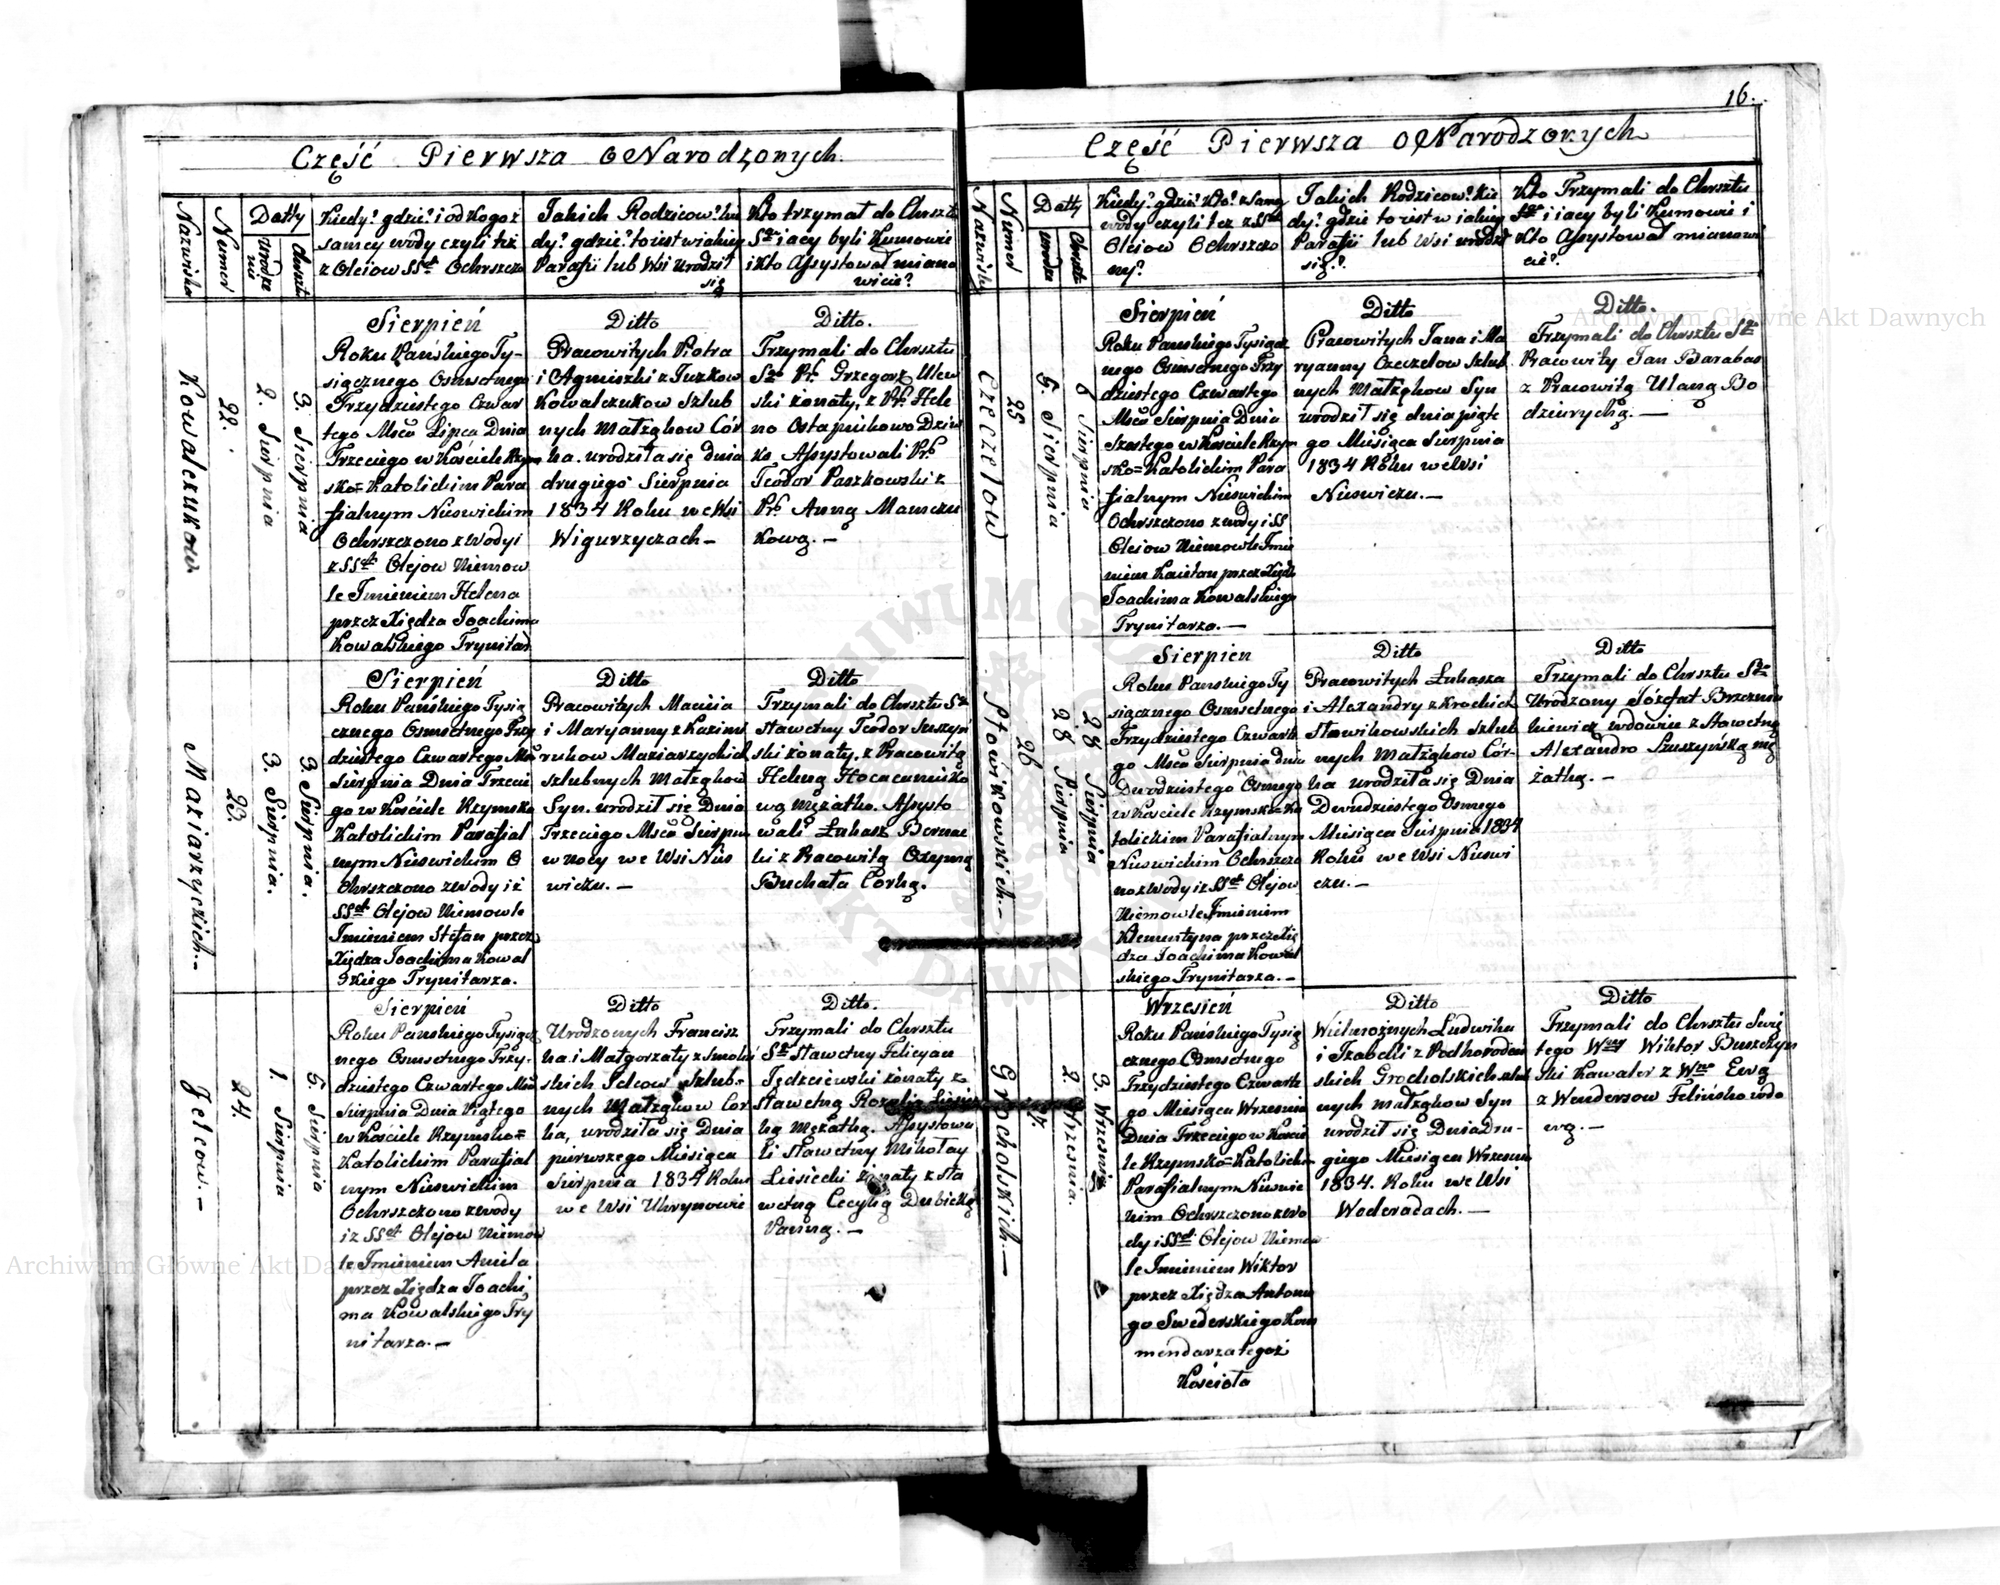 Część Pierwsza o Narodzonych.
Nazwisko
Numer
Datty
Urodze
nia
Chrztu
Kiedy? gdzie? i od kogo z
samey wody czyli też
z Olejow SSch Ochrszczo
Jakich Rodzicow? kie
dy? gdzie? to iest w iakiey
Parafii lub Wsi urodził
się
Kto trzymał do Chrsztu
Sgo i iacy byli Kumowie
i Kto Assystował miano
wicie?
Kowalczukow
22.
2. Sierpnia
3. Sierpnia
Sierpień
Roku Pańskiego Ty-
siącznego Osmsetnego
Trzydziestego Czwar
tego Mscu Lipca Dnia
Trzeciego w Kosciele Rzym
sko=Katolickim Para
fialnym Nieswickim
Ochrszczono z Wody i
z SSch Olejow Niemow
le Imieniem Helena
przez Xiędza Joachima
Kowalskiego Trynitar
Ditto
Pracowitych Piotra
i Agnieszki z Juzkow
Kowalczukow Szlub
nych Małzgkow Cór
ka. urodziła się dnia
drugiego Sierpnia
1834 Roku we Wsi
Wigurzyczach –
Ditto.
Trzymali do Chrsztu
Sgo Pr. Grzegorz
ski żonaty, z Pr. Hele
no Ostapiukowo Dziw
ko Assystowali Pr.
Teodor Paszkowski z
Pr. Anną Mamczu
kową. –
Maziarzyckich. –
23.
3. Sierpnia.
3 Sierpnia.
Sierpień
Roku Pańskiego Tysią
cznego Osmsetnego Trzy
dziestego Czwartego Mscu
Sierpnia Dnia Trzeci
go w Kościele Rzymsko
Katolickim Parafial
nym Nieswickim O
chrszczono z Wody i z
SSch Olejow Niemowle
Imieniem Stefan przez
Xiędza Joachima Kowal
skiego Trynitarza.
Ditto
Pracowitych Macieia
i Maryanny z Kazimi
rukow Maziarzyckich
szlubnych Małzgkow
Syn. urodził się Dnia
Trzeciego Mscu Sierpnia
w nocy we Wsi Nies
wiczu. –
Ditto
Trzymali do Chrsztu Sgo
Sławetny Teodor Suszyń
ski żonaty, z Pracowitą
Heleną
wą mężatko. Assysto
wali Łukasz Bernac
ki z Pracowitą
Buchała Corką.
Jelcow. –
24.
1. Sierpnia
5 Sierpnia
Sierpień
Roku Pańskiego Tysiącz
nego Osmsetnego Trzy-
dziestego Czwartego Mscu
Sierpnia Dnia Piątego
w Kościele Rzymsko=
Katolickim Parafial
nym Nieswickim
Ochrszczono z wody
i z SSch Olejow Niemow
le Imieniem Aniela
przez Xiędza Joachi
ma Kowalskiego Try
nitarza. –
Ditto
Urodzonych Francisz
ka i Małgorzaty z Smolin
skich Jelcow Szlub-
nych Małzgkow Cor
ka, urodziła się Dnia
pierwszego Miesiąca
Sierpnia 1834 Roku
we Wsi Uhrynowie
Ditto.
Trzymali do Chrsztu
Sgo Sławetny Felicyan
Jędrzeiewski żonaty z
Sławetną Rozalią
ką mężatką. Assystowa
li Sławetny Mikołay
Lisiecki żonaty z Sła
wetną Cecylią Dubicką
Panną. –
16.
Część Pierwsza o Narodzonych
Nazwisko
Numer
Datty
Urodze
Chrztu
Kiedy? gdzie? Kto? z samey
wody czyli też z SSch
Olejow Ochrszczo
ny?
Jakich Rodzicow? Kie
dy? gdzie to iest w iakiey
Parafii lub Wsi urodził
się?
Kto Trzymali do Chrsztu
Sgo i iacy byli Kumowie i
Kto Assystował mianowi
cie?
Czeczelow
25
5. Sierpnia
6 Sierpnia
Sierpień
Roku Pańskiego Tysiącz
nego Osmsetnego Trzy
dziestego Czwartego
Mscu Sierpnia Dnia
Szostego w Kościele Rzym
sko=Katolickim Para
fialnym Nieswickim
Ochrszczono z wody i SS
Olejow Niemowle Imie
niem Kaietan przez Xiędz
Joachima Kowalskiego
Trynitarza. –
Ditto
Pracowitych Jana i Ma
ryanny Czeczelow Szlub
nych Małzgkow Syn
urodził się dnia piąte
go Miesiąca Sierpnia
1834 Roku we Wsi
Nieswiczu. –
Ditto.
Trzymali do Chrsztu Sgo
Pracowity Jan Baraban
z Pracowitą Ulaną Bo
dziurychą. –
Słowikowskich. –
26
28 Sierpnia
28 Sierpnia
Sierpien
Roku Pańskiego Ty
siącznego Osmsetnego
Trzydziestego Czwarte
go Mscu Sierpnia dnia
Dwodziestego Osmego
w Kościele Rzymsko=Ka
tolickim Parafialnym
Nieswickim Ochrszczo
no z Wody i z SSch Olejow
Niemowle Imieniem
Klementyna przez Xię
dza Joachima Kowal
skiego Trynitarza. –
Ditto
Pracowitych Łukasza
i Alexandry z Krockich
Słowikowskich Szlub
nych Małzgkow Cór-
ka urodziła się Dnia
Dwudziestego Osmego
Miesiąca Sierpnia 1834
Roku we Wsi Nieswi
czu. –
Ditto
Trzymali do Chrsztu Sgo
Urodzony Józefat Brzezno
kiewicz wdowiec z Sławetną
Alexandro Szuszyńską mę
żatką. –
Grocholskich. –
27.
2 Wrzesnia.
3. Wrzesnia
Wrzesień
Roku Pańskiego Tysią
cznego Osmsetnego
Trzydziestego Czwarte
go Miesiąca Wrzesnia
Dnia Trzeciego w Kosci
le Rzymsko=Katolickim
Parafialnym Nieswic
kim Ochrszczono z wo
dy i SSch Olejow Niemow
le Imieniem Wiktor
przez Xiędza Antonie
go Swederskiego Kom
mendarza tegoż
Kościoła
Ditto
Wielmożnych Ludwika
i Izabelli z Podhorodeń
skich Grocholskich szlub
nych małzgkow Syn
urodził się Dnia Dru-
giego Miesiąca Wrzesnia
1834. Roku we Wsi
Woderadach. –
Ditto
Trzymali do Chrsztu Swię
tego Wny Wiktor Buszczyn
ski Kawaler z Wno Ewą
z Wendersow Felińsko wdo
wą. –
Archiwum Główne Akt Dawnych
Archiwum Główne Akt Dawnych
ARCHIWUM GŁÓWNE AKT DAWNYCH